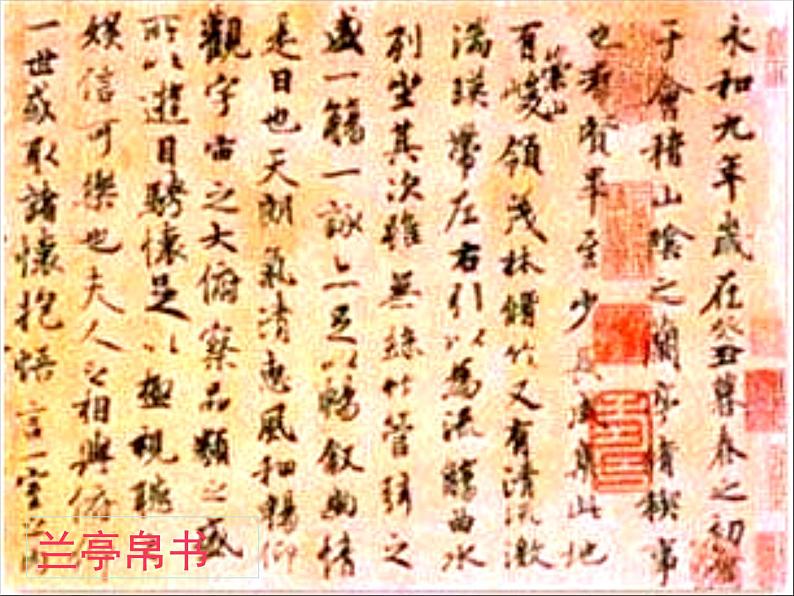 永和九年歲在癸丑暮春之初會
于會稽山陰之蘭亭脩稧事
也羣賢畢至少長咸集此地
有崇山峻領茂林脩竹又有清流激
湍暎帶左右引以為流觴曲水
列坐其次雖無絲竹管弦之
盛一觴一詠亦足以暢敘幽情
是日也天朗氣清惠風和暢仰
觀宇宙之大俯察品類之盛
所以遊目騁懷足以極視聽
娛信可樂也夫人之相與俯
一世或取諸懷抱悟言一室之內
兰亭帛书